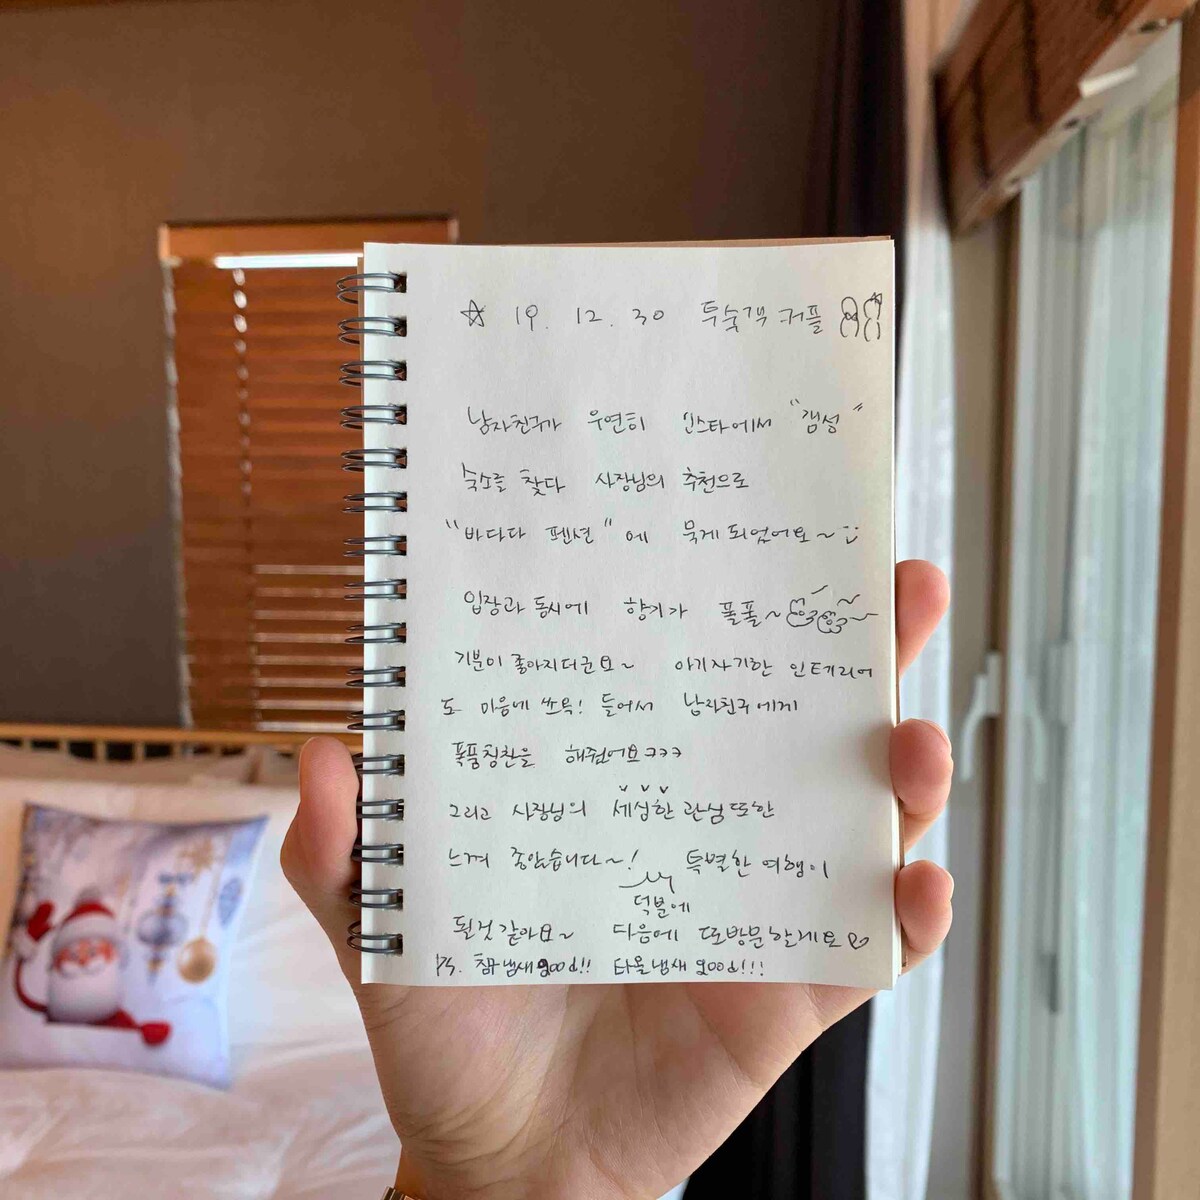 ☆ 19. 12. 30 투숙객 커플
남자친구가 우연히 인스타에서 "갬성"
숙소를 찾다 사장님의 추천으로
"바다다 펜션"에 묵게 되었어요~
입장과 동시에 향기가 폴폴~
기분이 좋아지더군요~ 아기자기한 인테리어
도 마음에 쏘옥! 들어서 남자친구에게
폭풍칭찬을 해줬어요ㅋㅋㅋ
그리고 사장님의 세심한 관심 또한
느껴 좋았습니다~! 특별한 여행이
덕분에
될것 같아요~ 다음에 또 방문할게요♡
PS. 침구냄새 good!! 타올냄새 good!!!